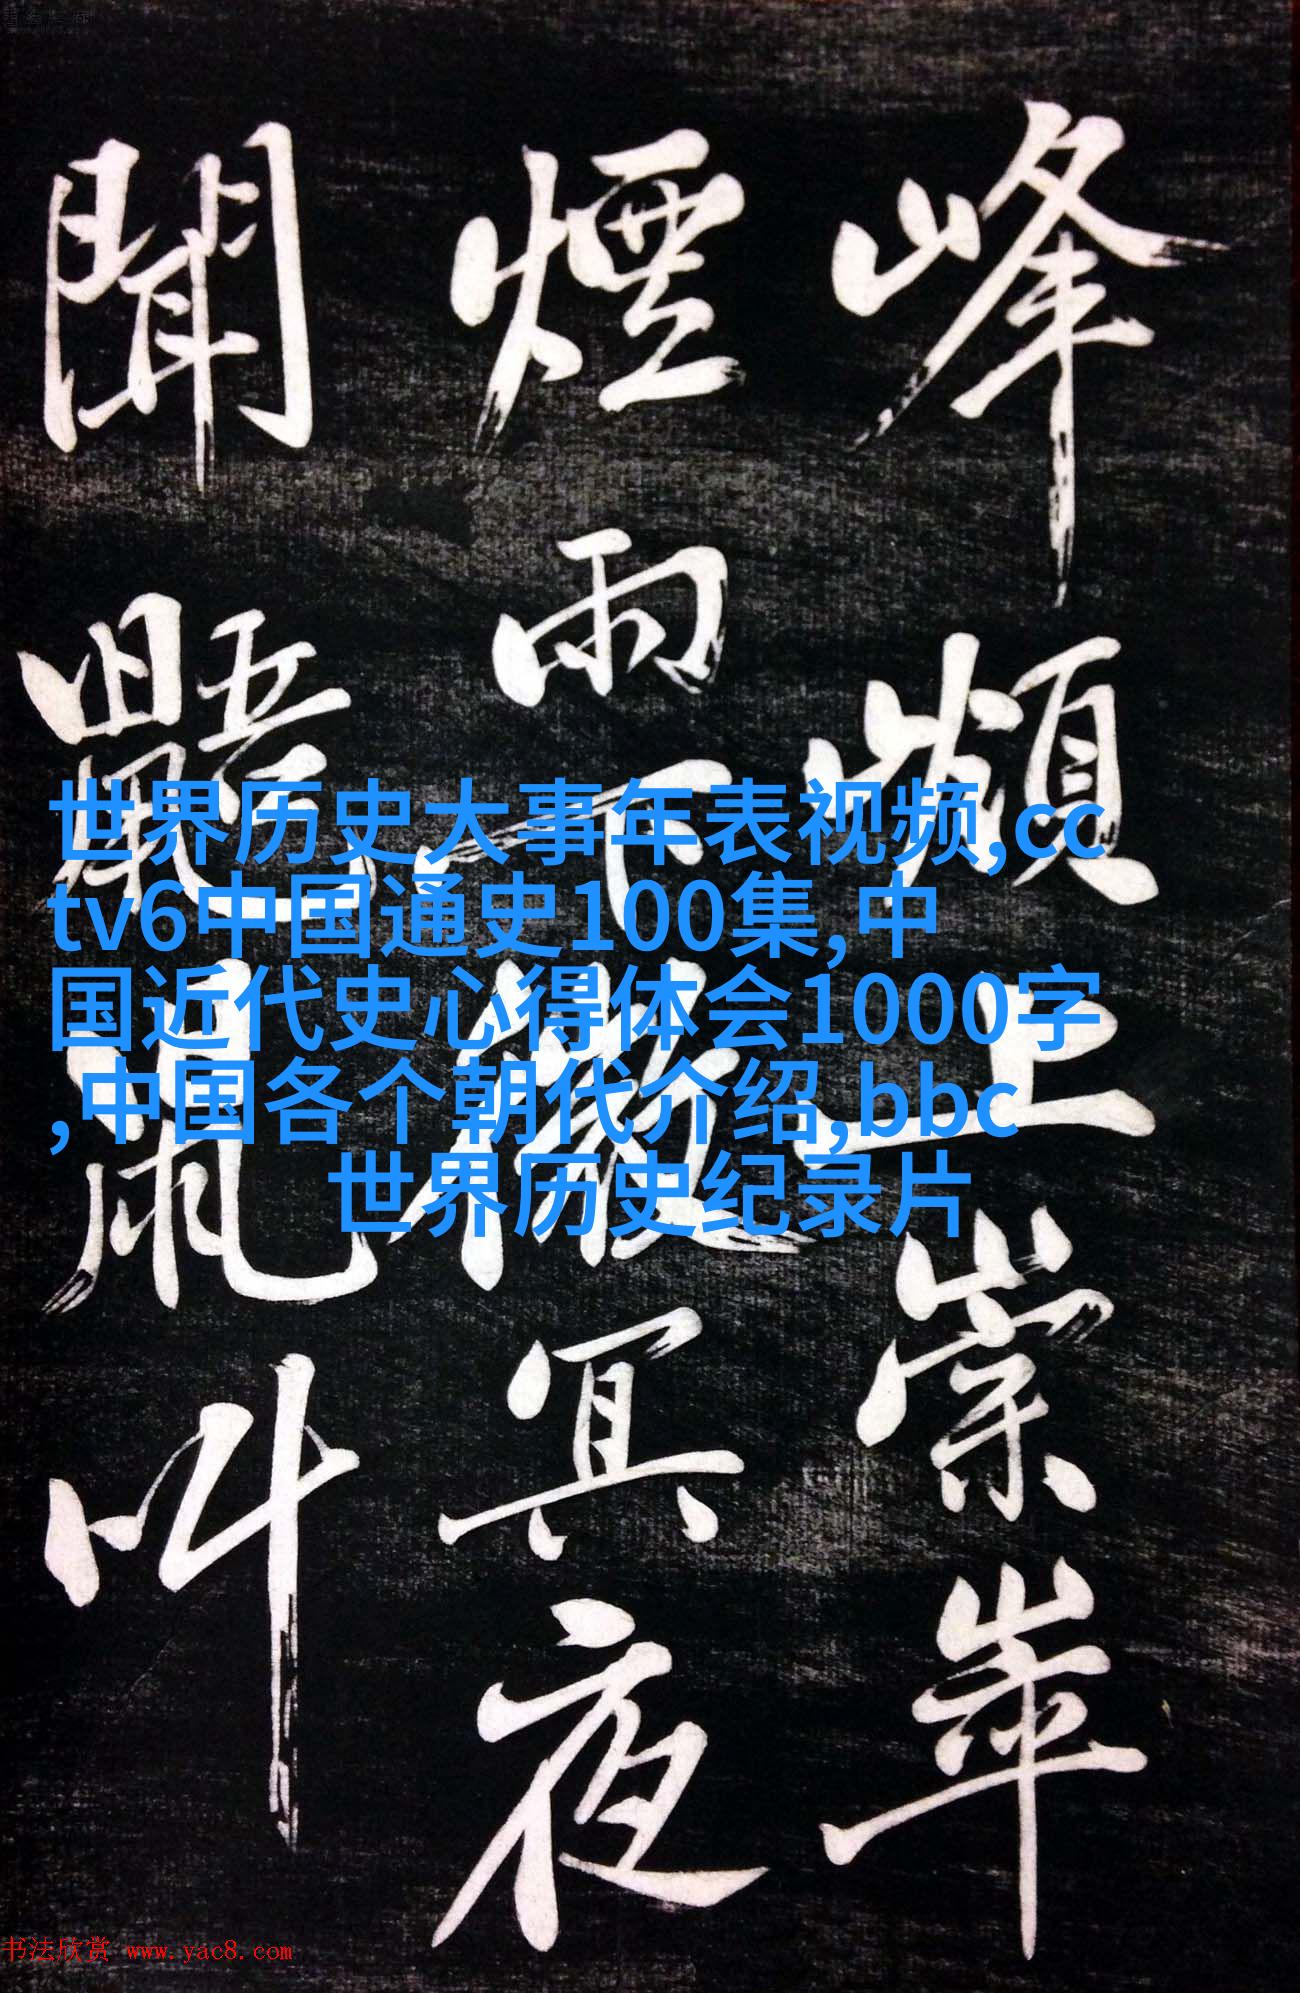 峰上崇崒
煙雨下微冥夜
聞鼯鼠叫
世界历史大事年表视频,cc
tv6中国通史100集,中
国近代史心得体会1000字
,中国各个朝代介绍,bbc
世界历史纪录片
书法欣赏 www.yac8.com